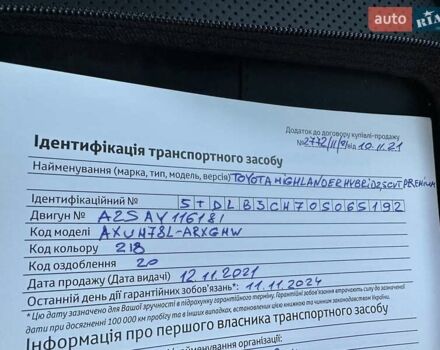 auto RIA
Додаток до договору купівлі-продажу
№2772/11/91 від 10.11.21
Ідентифікація транспортного засобу
Найменування (марка, тип, модель, версія) TOYOTA HIGHLANDER HYBRID 2.5 CVT PREMIUM
Ідентифікаційний № 5TDLB3CH70S065192
Двигун № A25AY116181
Код моделі AXUH78L-ARXGHW
Код кольору 218
Код оздоблення 20
Дата продажу (Дата видачі) 12.11.2021
Останній день дії гарантійних зобов'язань*: 11.11.2024
* Цю дату зазначено для Вашої зручності в підрахунку гарантійного терміну. Гарантійні зобов'язання втрачають силу до зазначеної
дати при досягненні 100 000 км пробігу та в інших випадках, встановлених цією книжкою та чинним законодавством України.
Інформація про першого власника транспортного засобу
найменування організації):